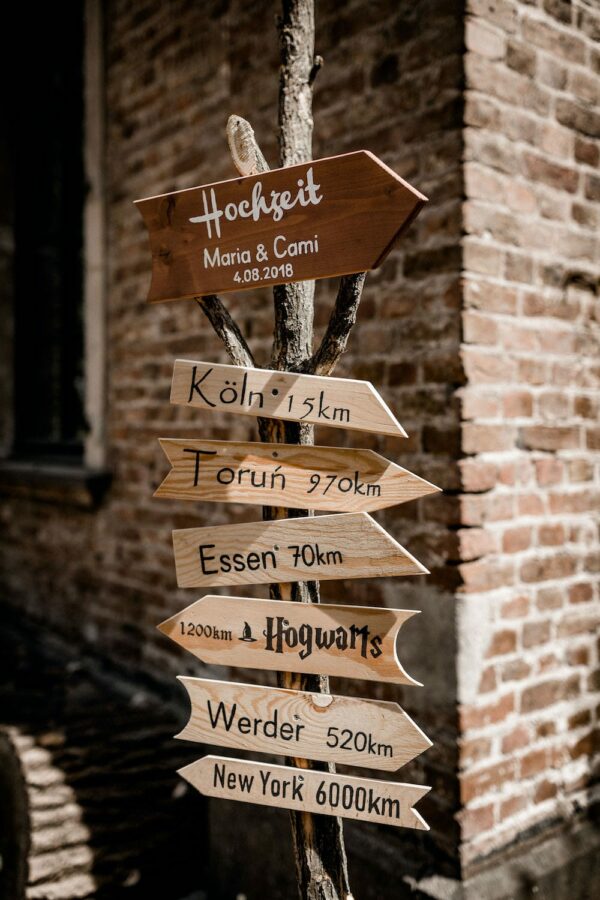 Hochzeit
Maria & Cami
4.08.2018
Köln 15km
Toruń 970km
Essen 70km
1200km Hogwarts
Werder 520km
New York 6000km